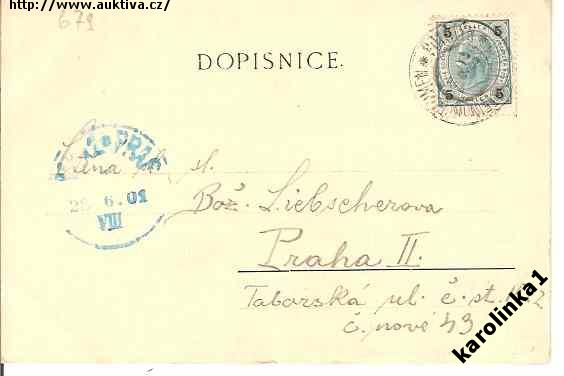 http://www.auktiva.cz/
679
DOPISNICE.
5 5
5 5
28 6.01
VIII
Ctěná sl. sl.
Bož. Liebscherova
Praha II.
Taborská ul. č. st.
č. nové 43
karolinka1